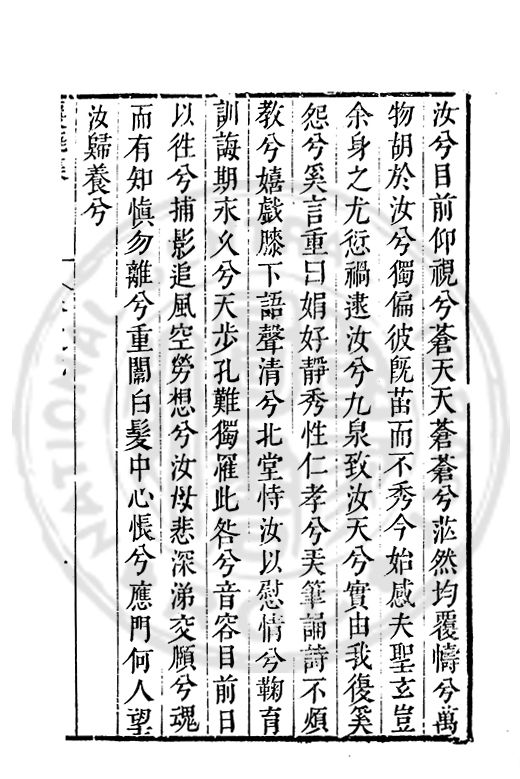 汝兮目前仰視兮蒼天天蒼蒼兮茫然均覆幬兮萬
物胡於汝兮獨偏彼旣苗而不秀今始感夫聖玄豈
余身之尤愆禍逮汝兮九泉致汝夭兮實由我復奚
怨兮奚言重曰娟好靜秀性仁孝兮美筆誦詩不煩
教兮嬉戲膝下語聲清兮北堂恃汝以慰情兮鞠育
訓誨期永久兮天步孔難獨罹此咎兮音容目前日
以徃兮捕影追風空勞想兮汝母悲深涕交頤兮魂
而有知慎勿離兮重闈白髮中心悵兮應門何人望
汝歸養兮